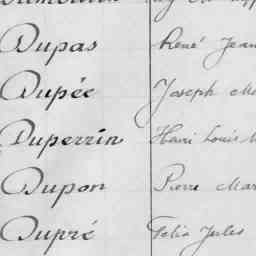 Dupas René Jean
Dupée Joseph Ma
Duperrin Henri Louis M
Dupon Pierre Mar
Dupré Felix Jules